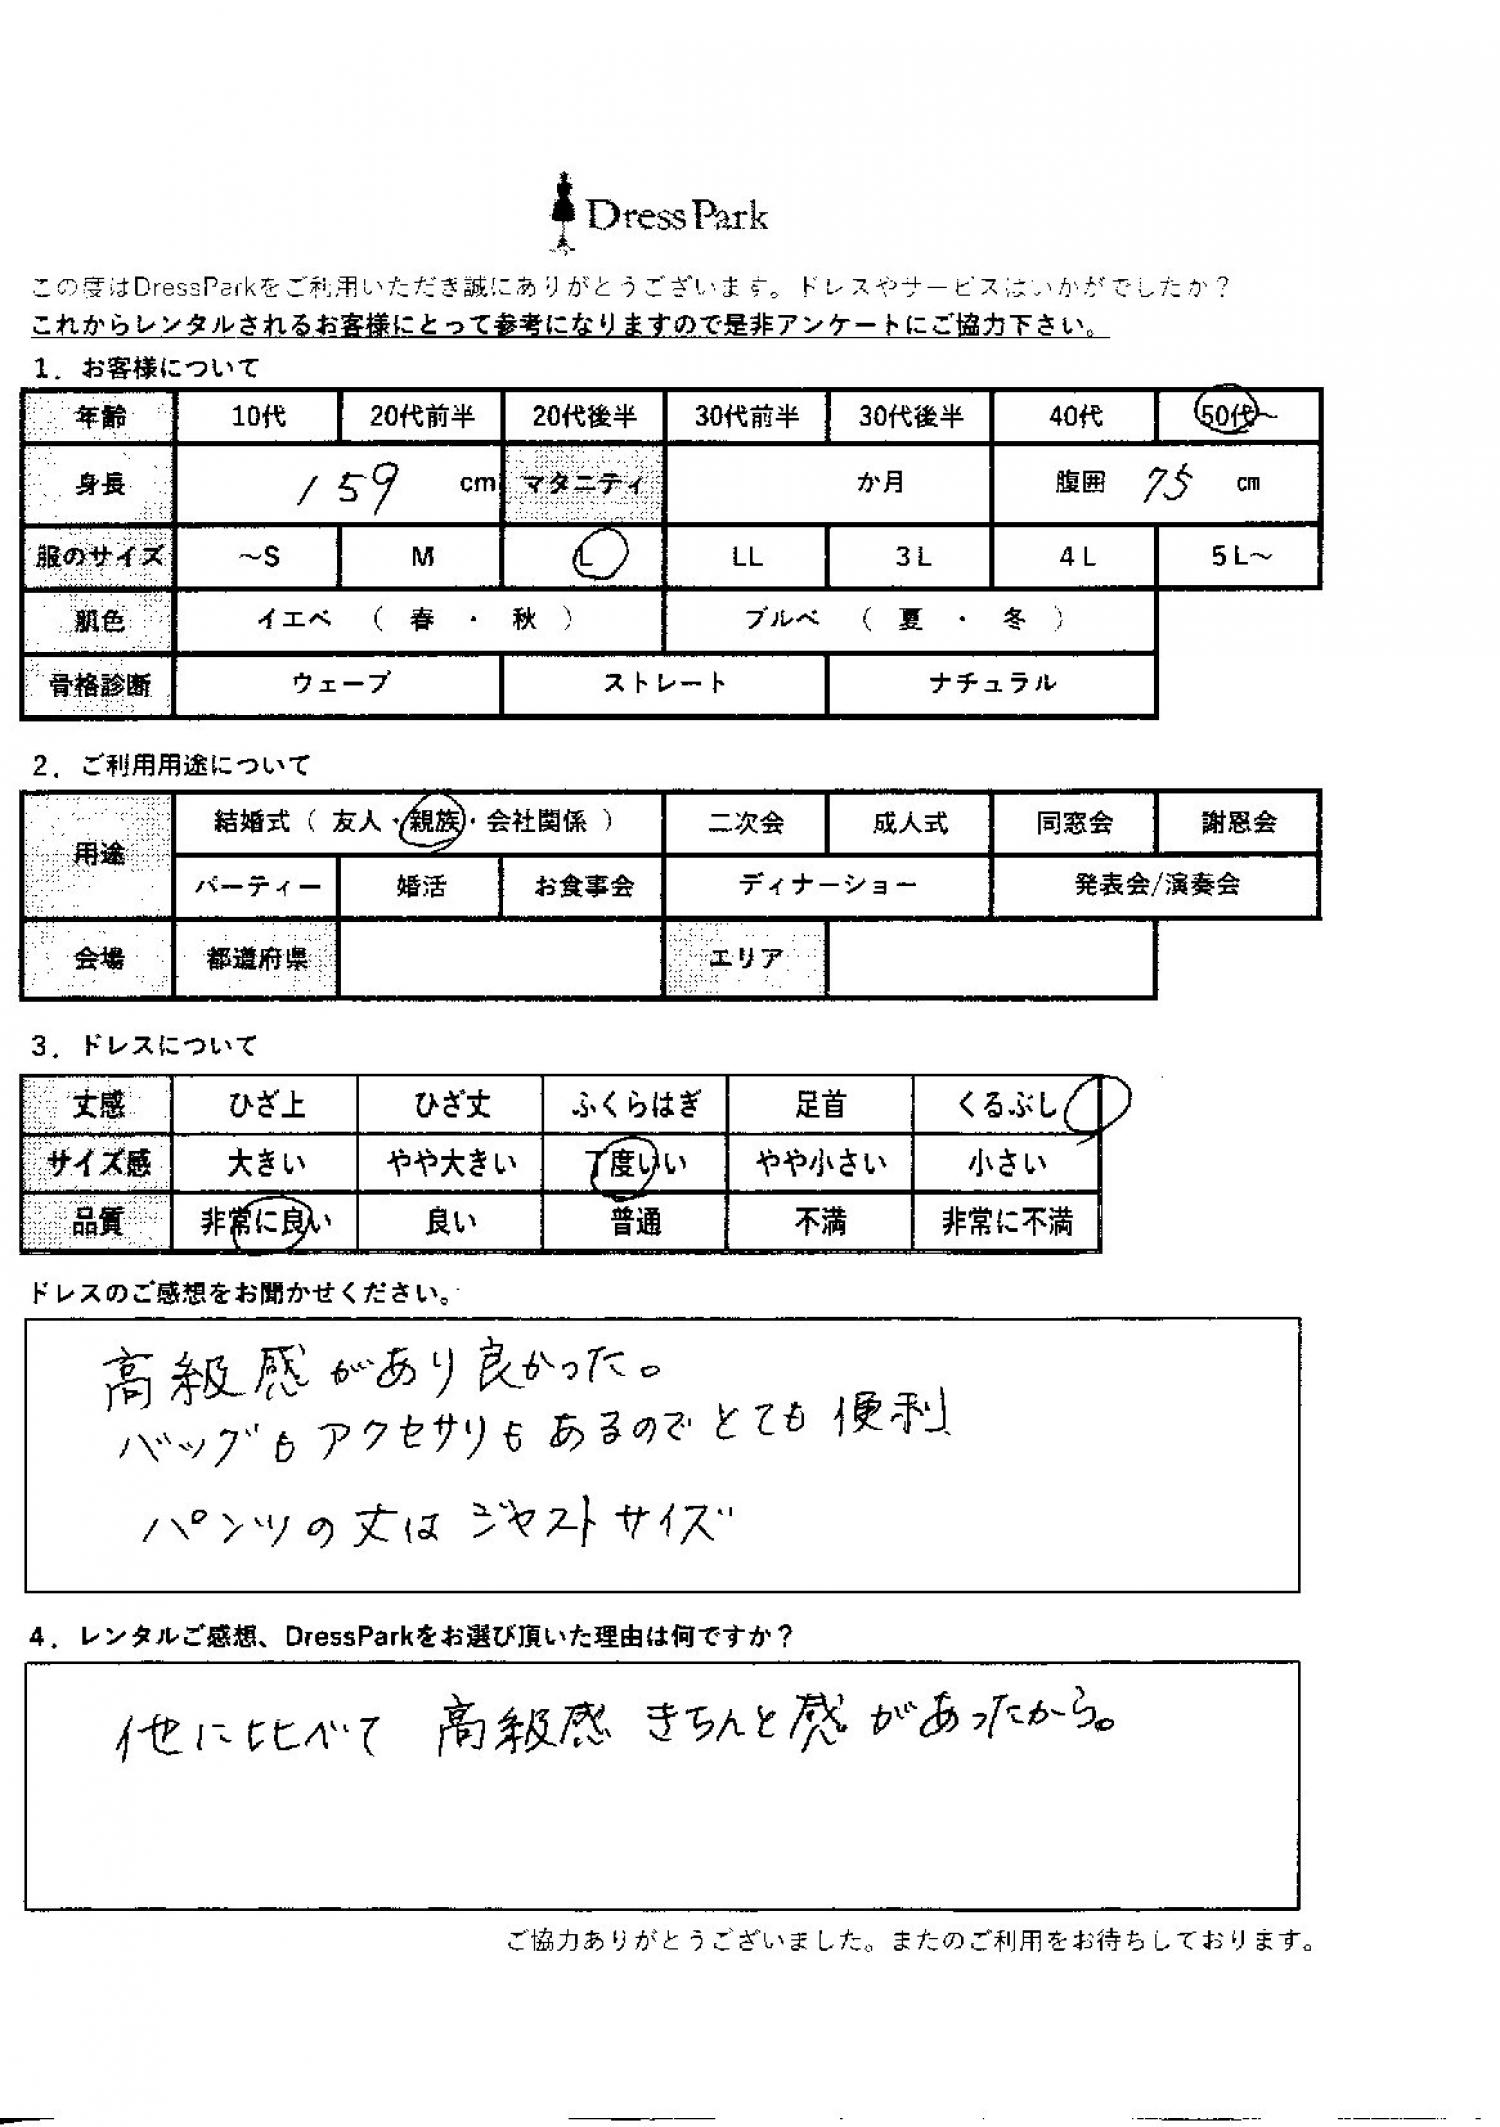 DressPark
この度はDressParkをご利用いただき誠にありがとうございます。ドレスやサービスはいかがでしたか？
これからレンタルされるお客様にとって参考になりますので是非アンケートにご協力下さい。
1．お客様について
年齢 10代 20代前半 20代後半 30代前半 30代後半 40代 50代～
身長 159 cm マタニティ か月 腹囲 75 cm
服のサイズ ～S M L LL 3L 4L 5L～
肌色 イエベ （ 春 ・ 秋 ） ブルベ （ 夏 ・ 冬 ）
骨格診断 ウェーブ ストレート ナチュラル
2．ご利用用途について
用途 結婚式（ 友人・親族・会社関係 ） 二次会 成人式 同窓会 謝恩会
パーティー 婚活 お食事会 ディナーショー 発表会/演奏会
会場 都道府県 エリア
3．ドレスについて
丈感 ひざ上 ひざ丈 ふくらはぎ 足首 くるぶし
サイズ感 大きい やや大きい 丁度いい やや小さい 小さい
品質 非常に良い 良い 普通 不満 非常に不満
ドレスのご感想をお聞かせください。
高級感があり良かった。
バッグもアクセサリもあるのでとても便利
パンツの丈はジャストサイズ
4．レンタルご感想、DressParkをお選び頂いた理由は何ですか？
他に比べて 高級感 きちんと感があったから。
ご協力ありがとうございました。またのご利用をお待ちしております。